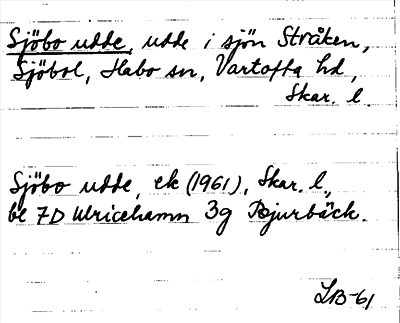 Sjöbo udde, udde i sjön Stråken,
Sjöbol, Habo sn, Vartofta hd,
Skar. l.
Sjöbo udde, ek (1961), Skar. l.,
bl 7D Ulricehamn 3g Bjurbäck.
LB-61